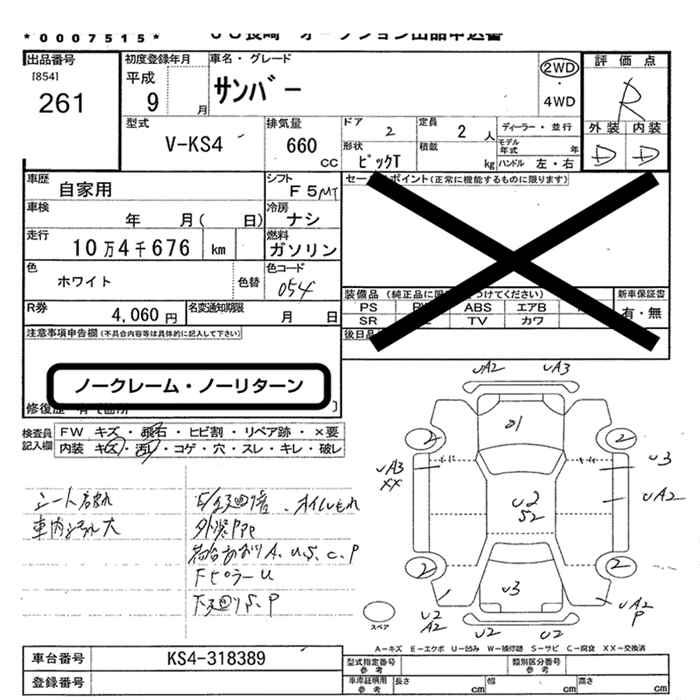 *0007515*
出品番号
[854]
261
初度登録年月
平成
9 月
車名・グレード
サンバー
2WD
・
4WD
評価点
R
外装 内装
D D
型式
V-KS4
排気量
660
CC
ドア
2
定員
2 人
形状
ピックT
積載
kg
ディーラー・並行
モデル
年式 年
ハンドル 左・右
車歴
自家用
シフト
F5MT
車検
年 月( 日)
冷房
ナシ
走行
10万4千676 km
燃料
ガソリン
色
ホワイト
色替
色コード
054
R券
4,060円
名変通知期限
月 日
注意事項申告欄(不具合内容等は具体的に記入して下さい)
ノークレーム・ノーリターン
ポイント(正常に機能するものに限ります)
装備品
PS ABS エアB
SR TV カワ
新車保証書
有・無
後日品
検査員
記入欄
FW キズ・飛石・ヒビ割・リペア跡・×要
内装 キズ・汚れ・コゲ・穴・スレ・キレ・破レ
外装PPP
FピラーU
UA2 UA3
U1
2 2
UA3
XX
U3
UA2
U2
S2
2 2
U3
U2
A2
UA2
P
U2 U2
スペア
A-キズ E-エクボ U-凹み W-補修跡 S-サビ C-腐食 XX-交換済
車台番号
KS4-318389
登録番号
型式指定番号
参考
類別区分番号
参考
車庫証明用
参考
長さ cm 幅 cm 高さ cm